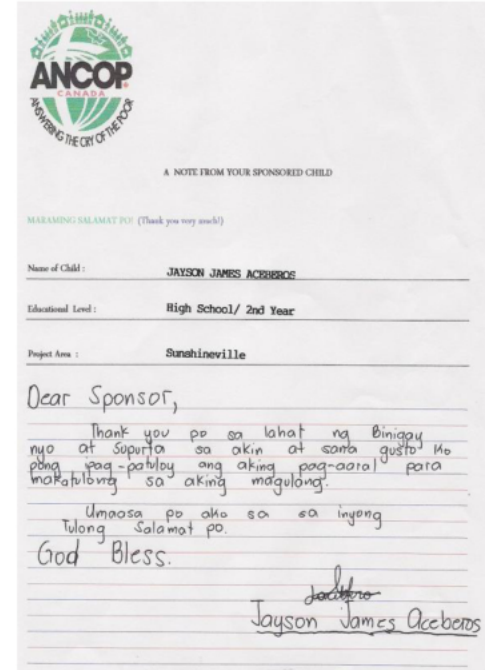 ANCOP
CANADA
ANSWERING THE CRY OF THE POOR
A NOTE FROM YOUR SPONSORED CHILD
MARAMING SALAMAT PO! (Thank you very much!)
Name of Child : JAYSON JAMES ACEBEROS
Educational Level : High School/ 2nd Year
Project Area : Sunshineville
Dear Sponsor,
Thank you po sa lahat ng Binigay
nyo at Supurta sa akin at sana gusto ko
pong pag-patuloy ang aking pag-aaral para
makatulong sa aking magulang.
Umaasa po ako sa sa inyong
Tulong Salamat po.
God Bless.
Jayson James Aceberos